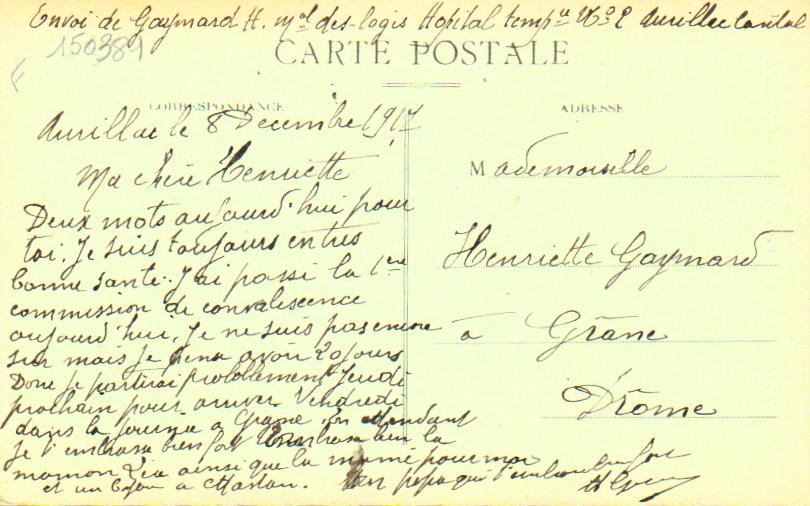 Envoi de Gaymard H. Mal des-logis Hopital tempre No 2 Aurillac Cantal
150389
CARTE POSTALE
CORRESPONDANCE
ADRESSE
Aurillac le 8 Decembre 1917
Ma chère Henriette
Deux mots aujourd'hui pour
toi. Je suis toujours en tres
bonne santé. J'ai passé la 1ere
commission de convalescence
aujourd'hui. Je ne suis pas encore
sur mais je pense avoir 20 jours
Donc je partirai probablement Jeudi
prochain pour arriver Vendredi
dans la journée a Grane. En attendant
je t'embrasse bien fort Embrasse bien la
maman Léa ainsi que la mémé pour moi
et un a Marlou. Ton papa qui t'embrasse fort
Mademoiselle
Henriette Gaymard
à Grâne
Drôme